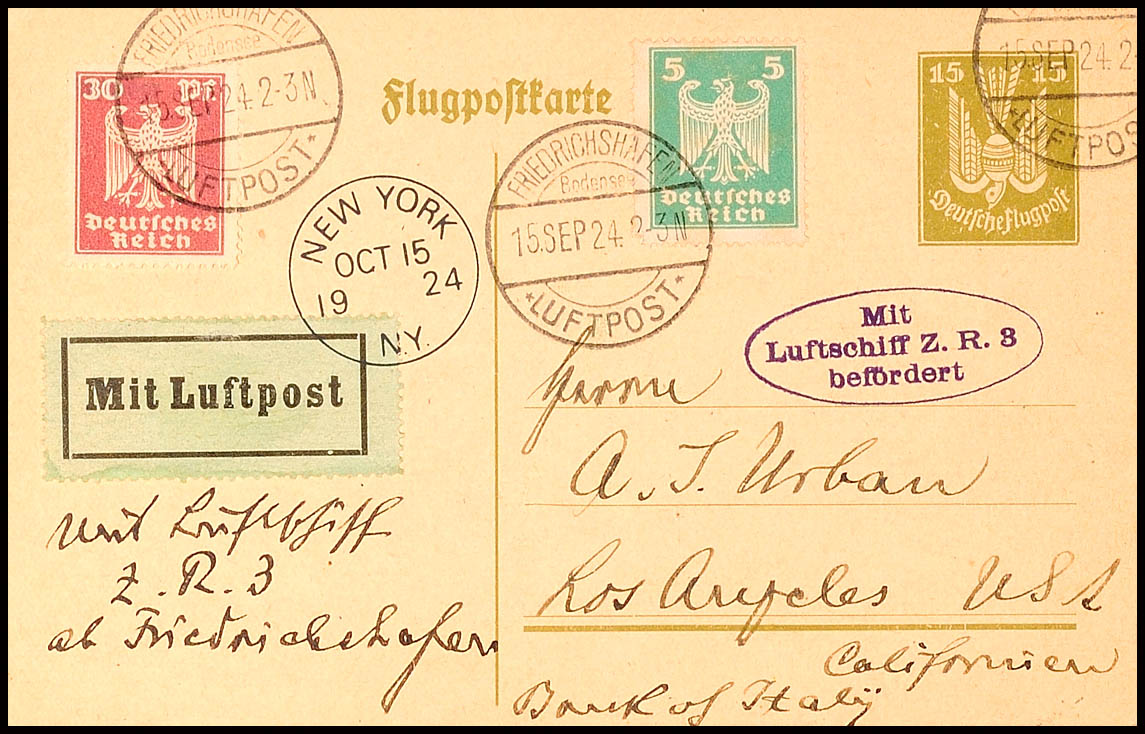 FRIEDRICHSHAFEN
Bodensee
15.SEP 24. 2-3 N
*LUFTPOST*
30 Pf.
Deutsches
Reich
Flugpostkarte
5 5
Deutsches
Reich
FRIEDRICHSHAFEN
Bodensee
15.SEP 24. 2-3 N
*LUFTPOST*
15 15
Deutsche Flugpost
15.SEP 24. 2-
*LUFTPOS
NEW YORK
OCT 15
19 24
N.Y.
Mit Luftpost
Mit
Luftschiff Z. R. 3
befördert
Herrn
A. J. Urban
Los Angeles USA
Californien
Bank of Italy
mit Luftschiff
Z. R. 3
ab Friedrichshafen